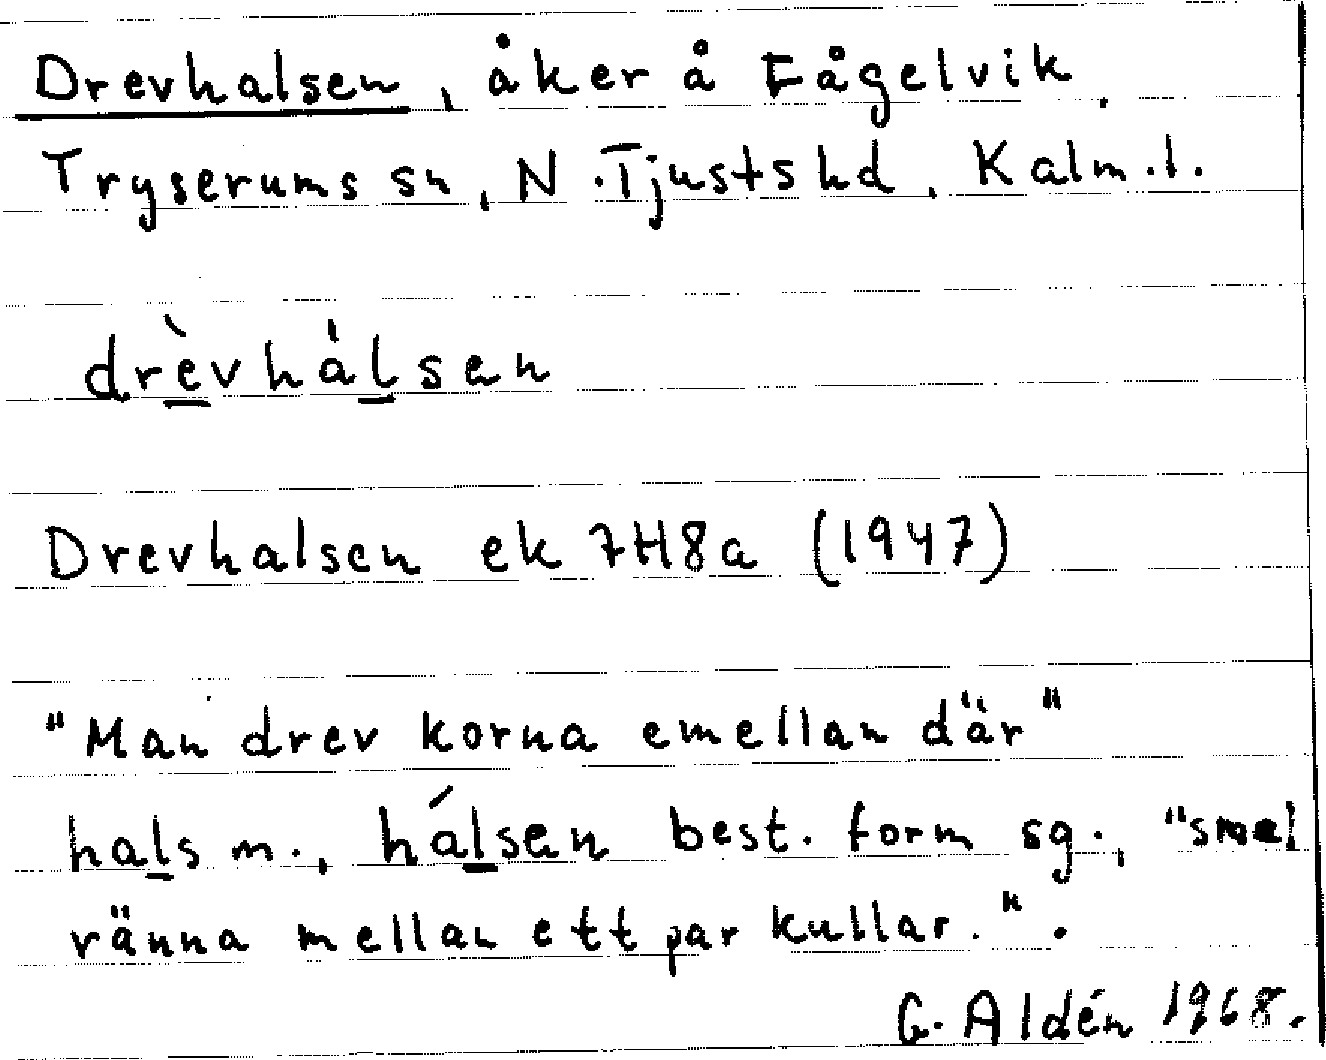 Drevhalsen, åker å Fågelvik,
Tryserums sn, N. Tjusts hd, Kalm. l.
drèvhàlsen
Drevhalsen ek 7H8a (1947)
"Man drev korna emellan där"
hals m., hálsen best. form sg., "smal
ränna mellan ett par kullar.".
G. Aldén 1968.